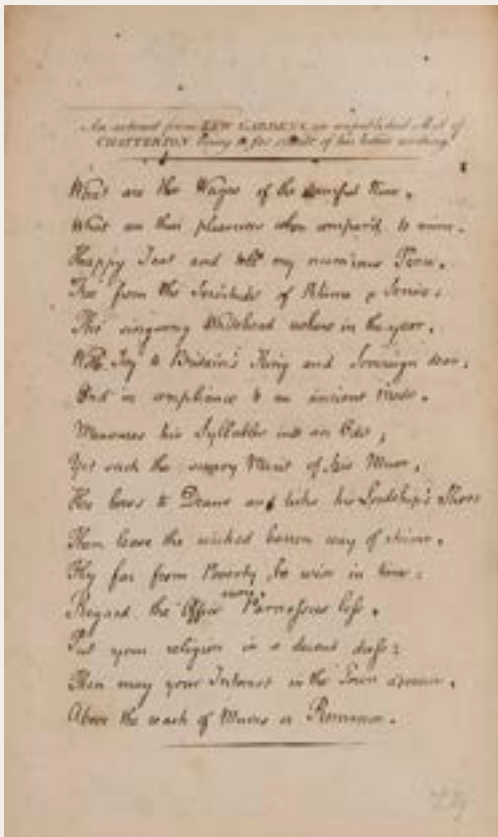 An extract from KEW GARDENS, an unpublished M.S. of
CHATTERTON being a fac simile of his hand writing
What are the Wages of the tuneful Nine,
What are their pleasures when compar'd to mine.
Happy I eat and tell my num'rous Pence,
Free from the Servitude of Rhime & Sense:
Tho' sing-song Whitehead ushers in the year,
With Joy to Britain's King and Sovereign dear,
And in compliance to an ancient Mode,
Measures his Syllables into an Ode,
Yet such the Merit of his Muse,
He bows to Deans and licks his Lordship's Shoes
Then leave the wicked barren way of rhime,
Fly far from Poverty, be wise in time:
Regard the Office more, Parnassus less,
Put your religion in a decent dress:
Then may your Interest in the Town advance,
Above the reach of Muses or Romance.